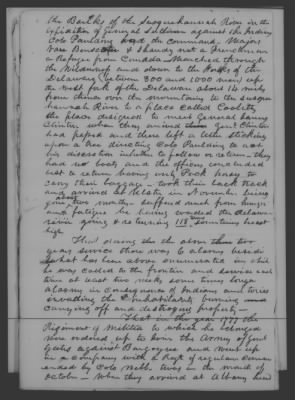 the Banks of the Susquehannah River in the
expedition of General Sullivan against the Indians
Cols Pawling had the command, Majors
Van Benscoten & a Frenchman
a Refugee from Canada Marched through
the Wilderness and down to the Forks of the
Delaware between 300 and 1000 men up
the West fork of the Delaware about 14 miles
from thence over the mountains to the Susque
hannah River to a place called
the place designed to meet General James
Clinton when they arrived there Genl Clinton
had passed and there left a letter sticking
upon a tree directing Cols Pawling to use
his discretion whether to follow or return. They
had no boats and the officers concluded
best to return having only Pack horses to
carry their baggage. took their back track
and arrived at in November being
gone about two months. suffered much from hunger
and fatigue he having waded the Delaware
river going & returning 118 sometimes breast
high
That during the above two
years service there was 6 alarms beside
what has been above enumerated in which
he was called to the frontier and service each
time at least two weeks some times longer
alarms in consequence of Indians and tories
invading the Inhabitants burning
carrying off and destroying property
That in the year 1777 the
Regiment of Militia to which he belonged
were ordered up to join the Army of Genl
Gates against Burgoyne and went up
in a company with a Regt of regulars comm
anded by Cols Webb. twas in the month of
October. When they arrived at Albany